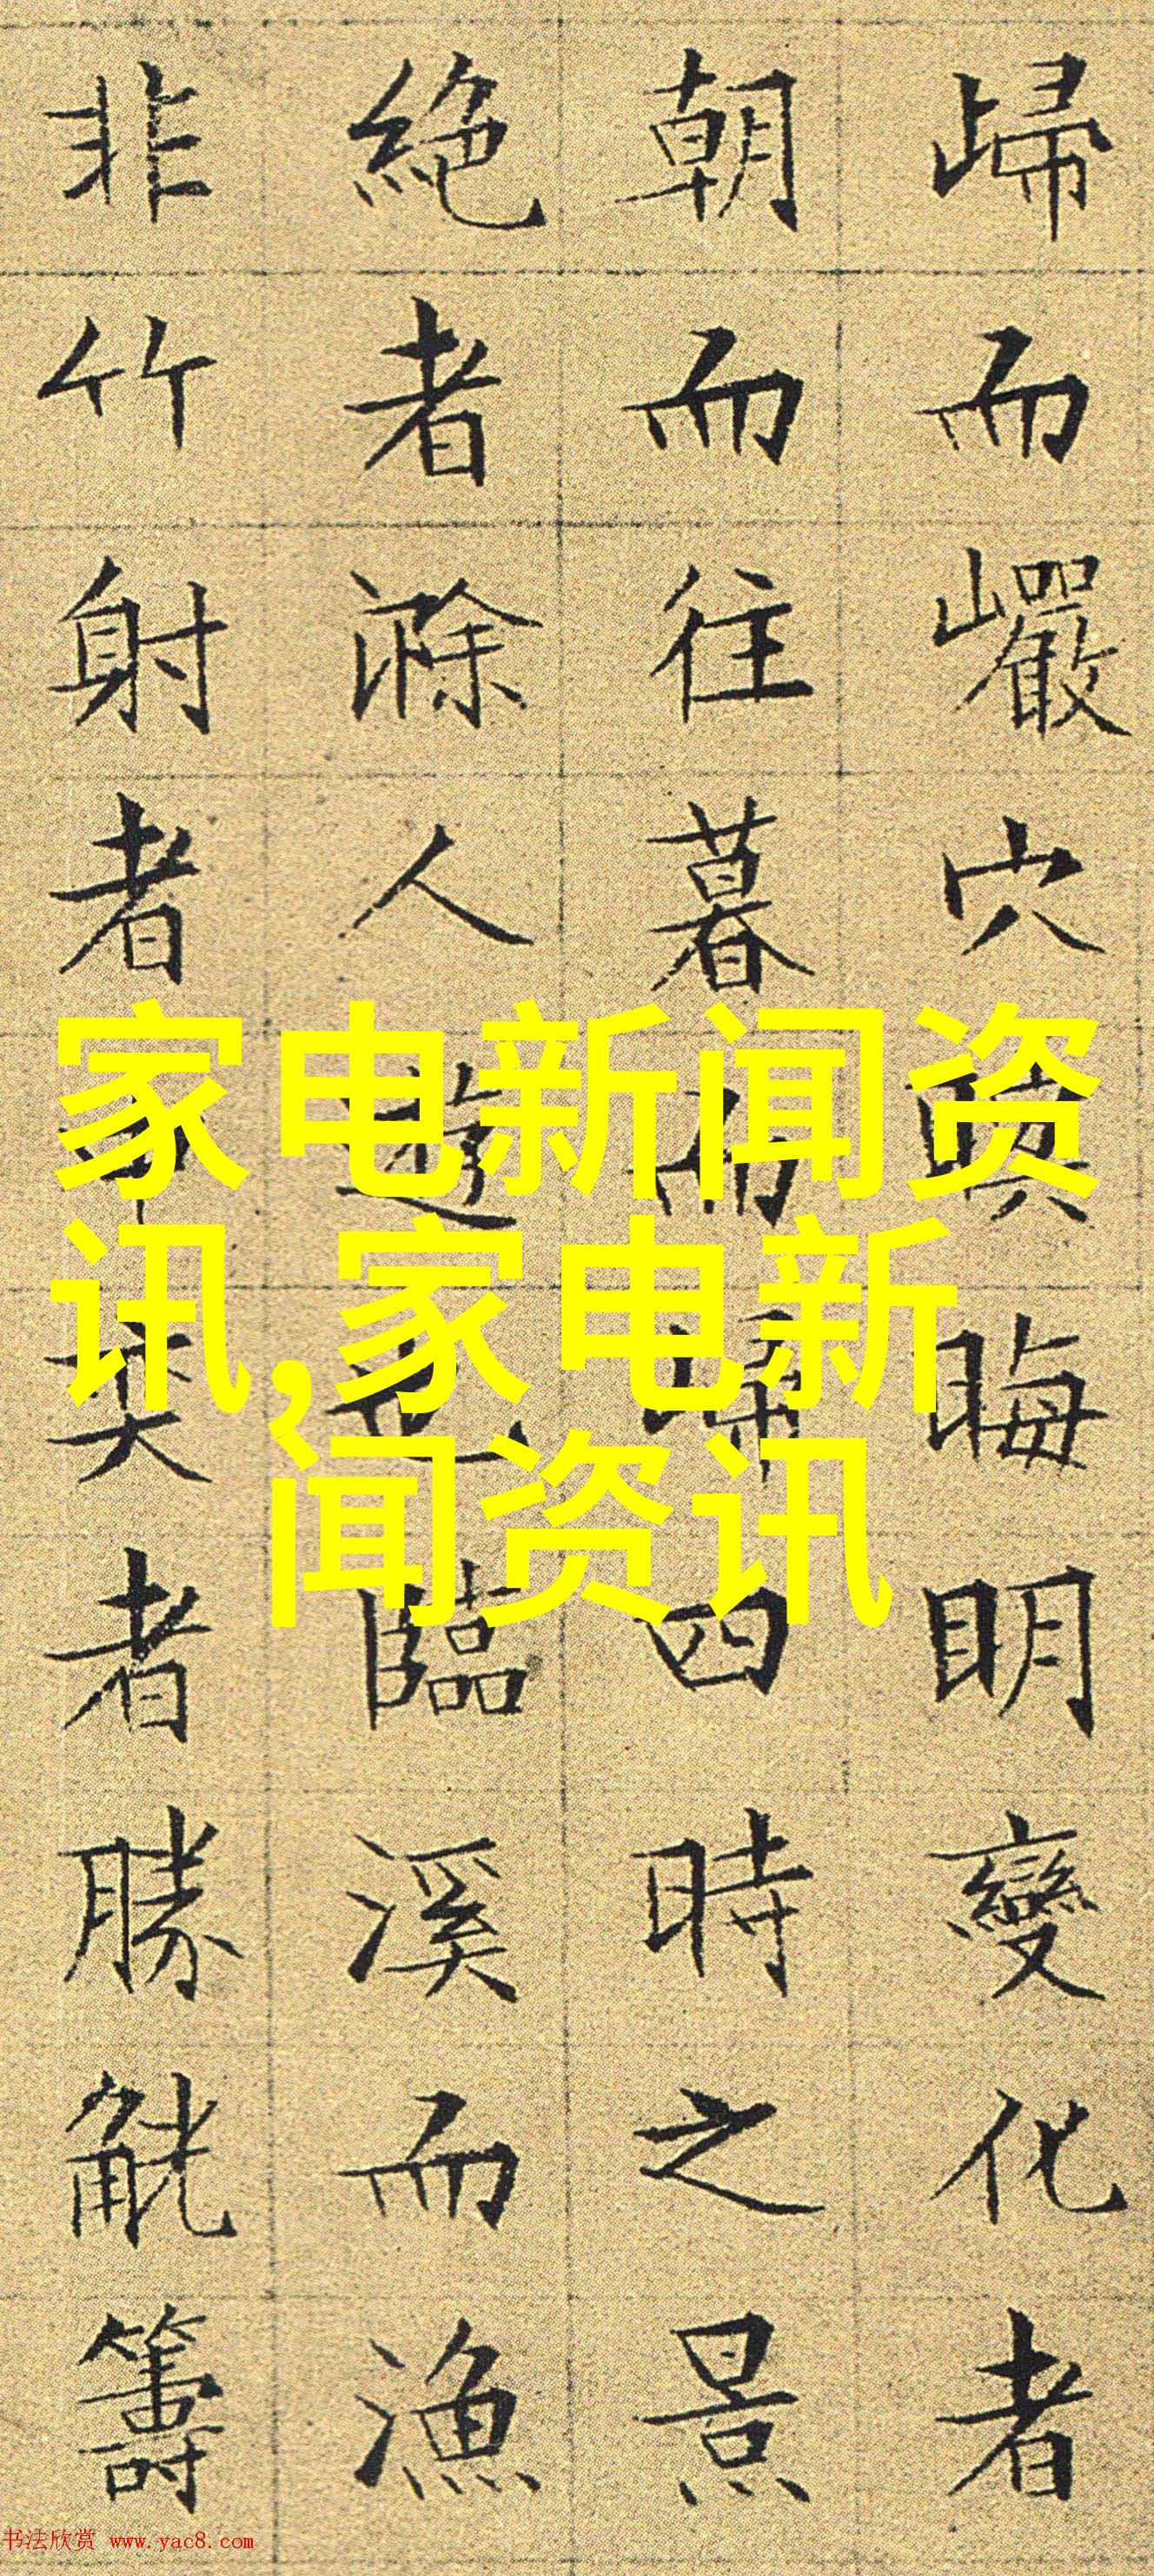 歸而巖穴暝晦明變化者
朝而往暮而歸四時之景
絶者滁人遊也臨溪而漁
非竹射者中奕者勝觥籌
家电新闻资
讯,家电新
闻资讯
书法欣赏 www.yac8.com